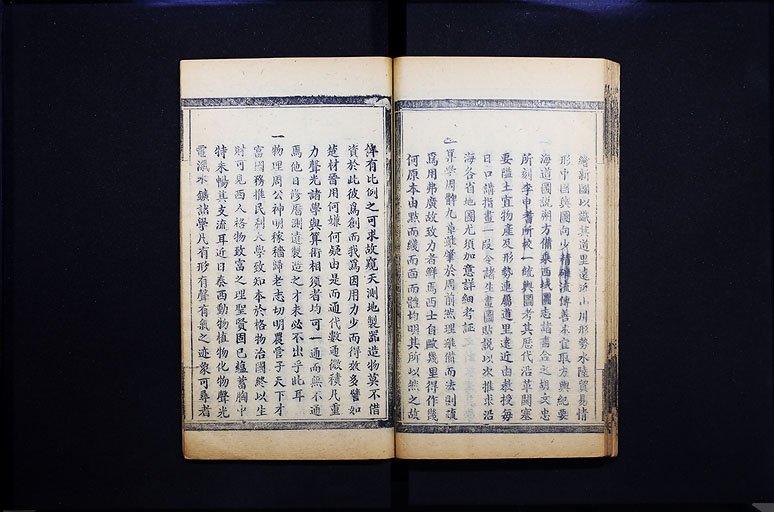 繪新圖以識其道里遠近山川形勢水陸貿易情
形中國輿圖向少精確流傳善本宜取方輿紀要
海道國說朔方備乘西域圖志諸書合之胡文忠
所刻李申耆所校一統輿圖考其歷代沿革關塞
要隘土宜物產及形勢連屬道里遠近由教授每
日口講指畫一段令諸生畫圖貼說以次推求沿
海各省地圖尤須加意詳細考証
一算學周髀九章雖肇於周前然理雖備而法則
爲用弗廣故致力者鮮焉西士自歐幾里得作幾
何原本由點而綫而面而體均明其所以然之故
俾有比例之可求故窺天測地製器造物莫不借
資於此彼爲創而我爲因用力少而得效多譬如
楚材晉用何嫌何疑由是而通代數通微積凡重
力聲光諸學與算術相須者均可一通而無不通
焉他日修曆測遠製造之才未必不出乎此耳
一物理周公神明稼穡歸老志切明農管子天下才
富國務推民利大學致知本於格物治國終以生
財可見西人格物致富之理聖賢固已蘊蓄胸中
特未暢其支流耳近日泰西動物植物化物聲光
電瀛水鑛諸學凡有形有聲有氣之迹象可尋者